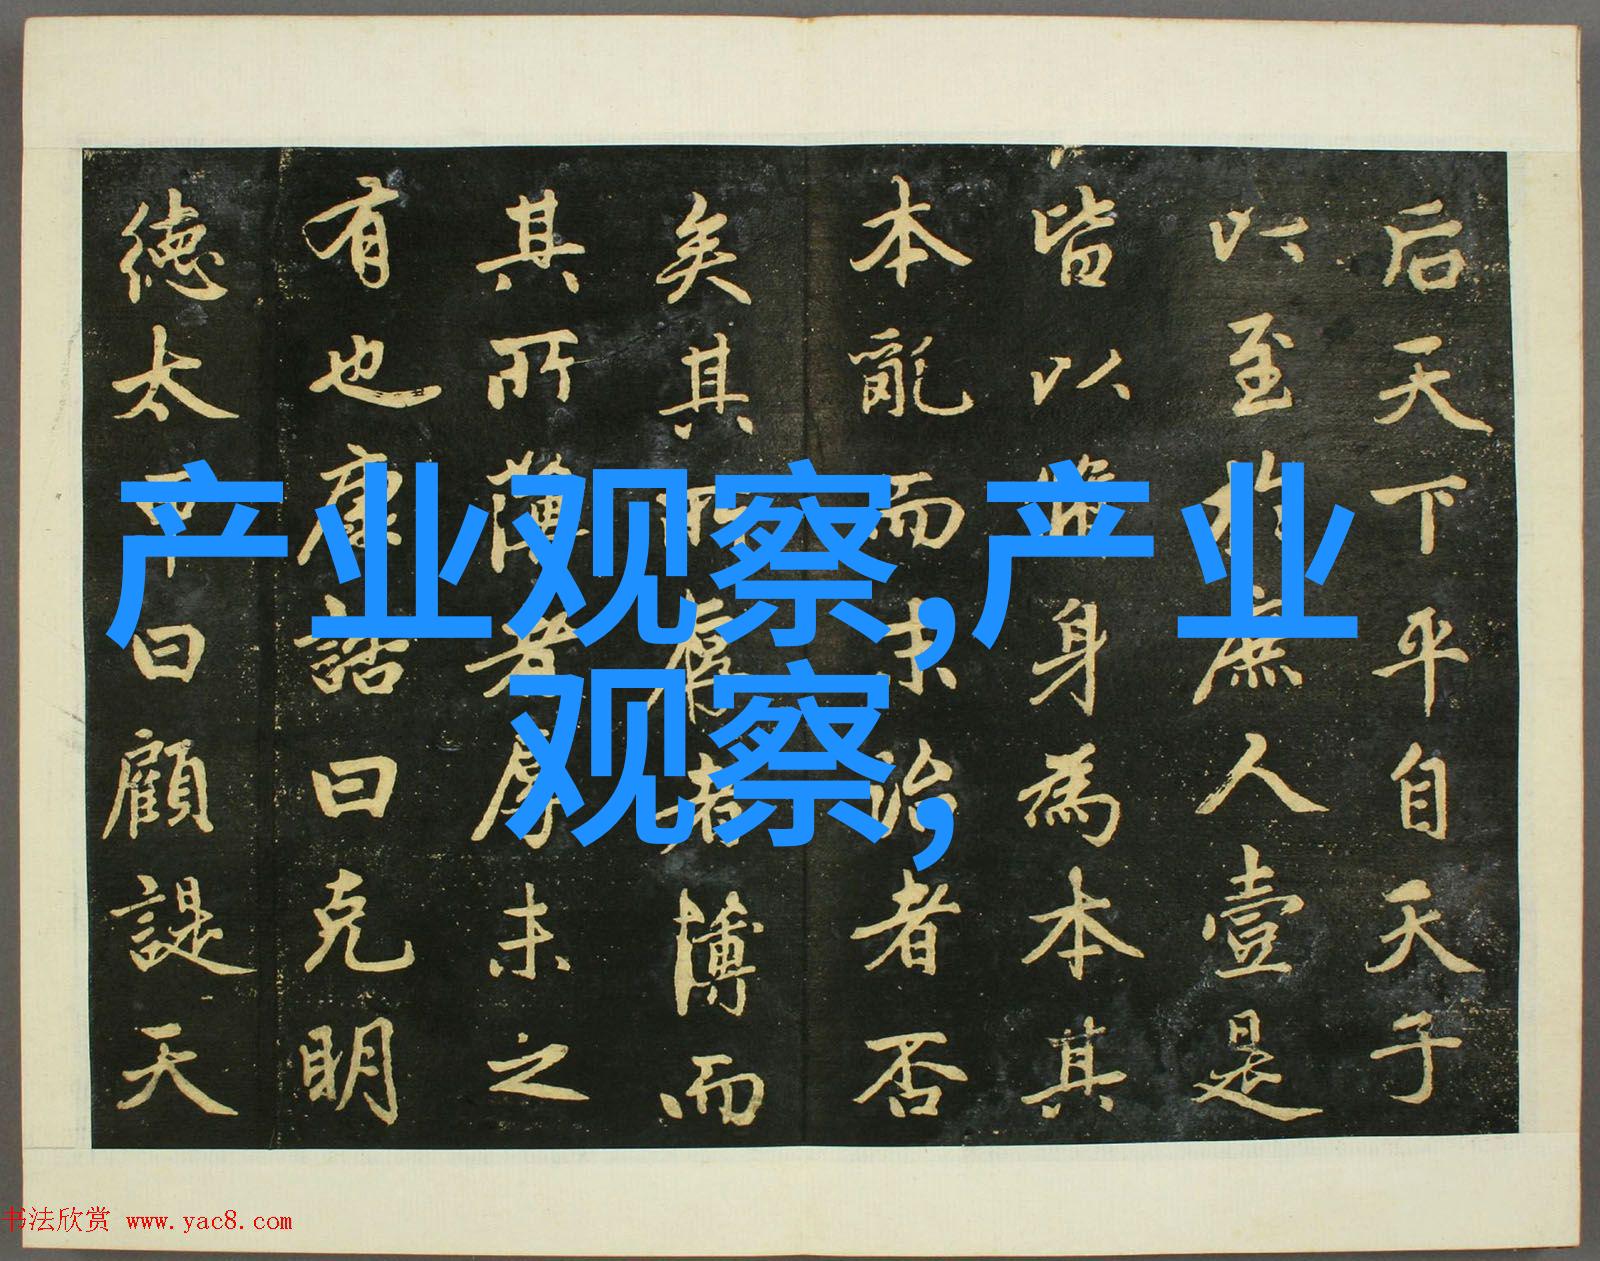 后天下平自天子
以至於庶人壹是
皆以脩身為本其
本亂而末治者否
矣其所厚者薄而
其所薄者厚未之
有也康誥曰克明
德太甲曰顧諟天
产业观察,产业
观察,
书法欣赏 www.yac8.com